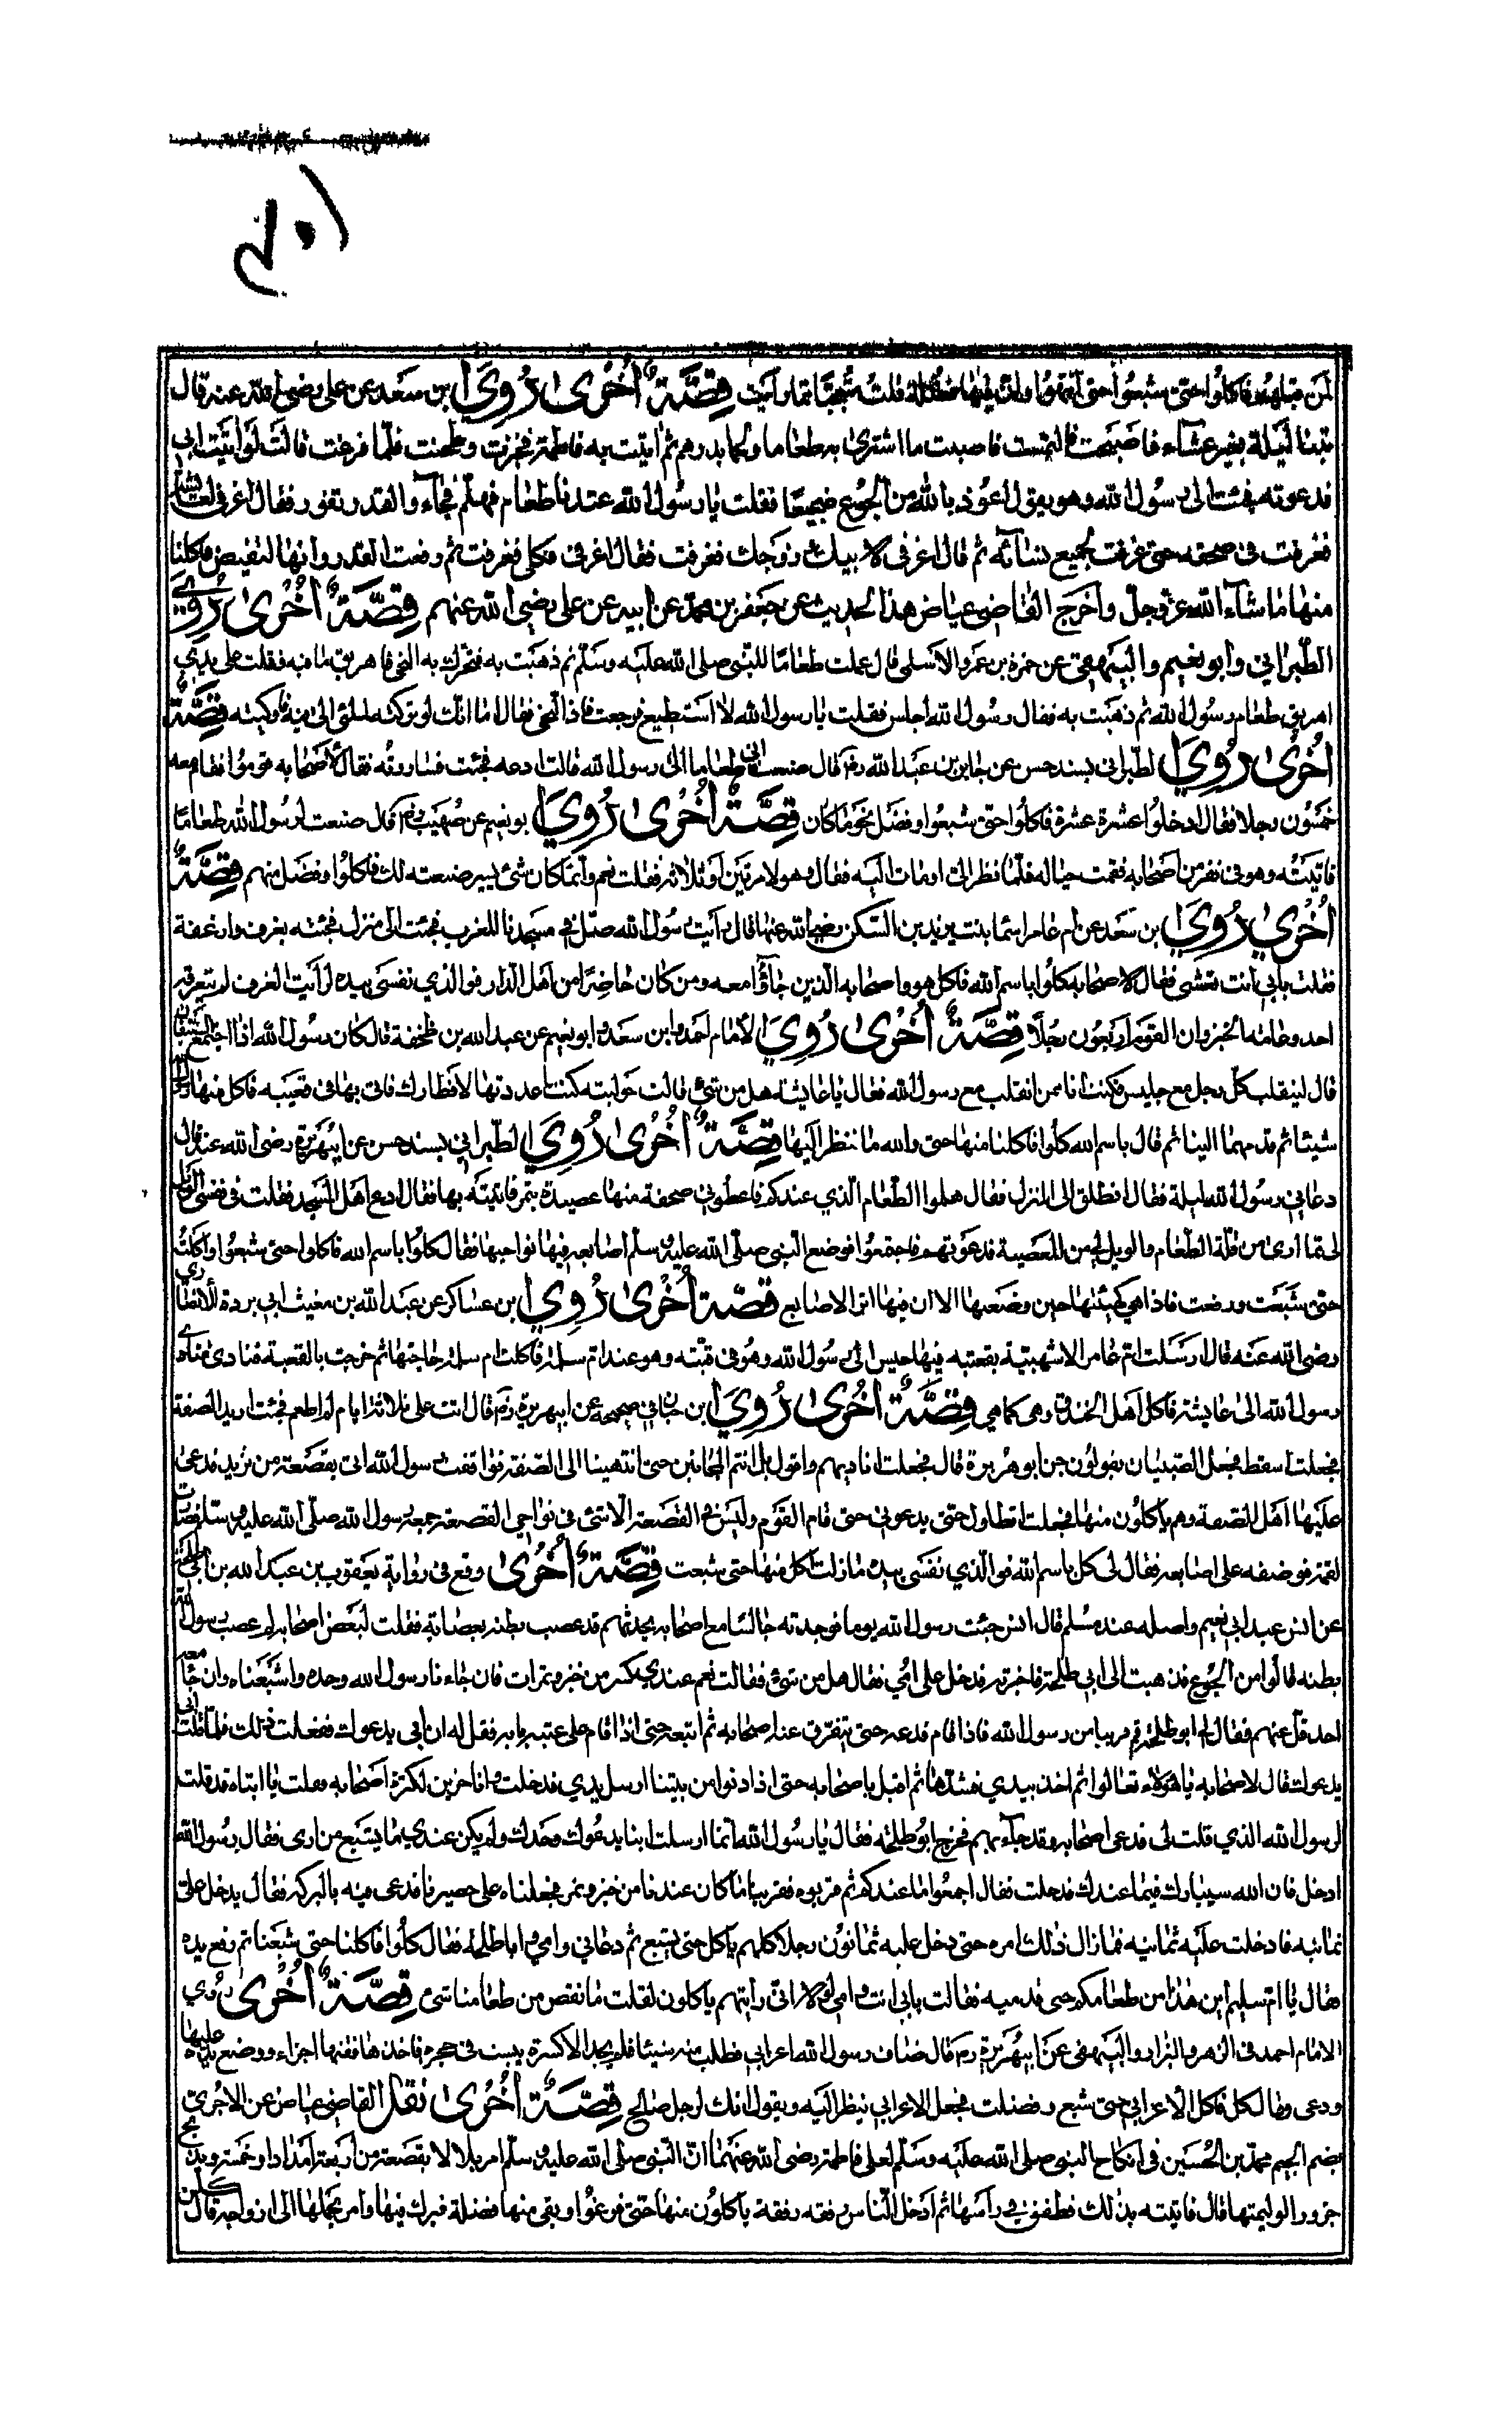 لمن قبلهم فاكلوا حتى شبعوا حتى انتهوا وان فيها فضلة قلت متعجبا مما رأيت قصة اخرى روي ابن سعد عن علي رضي الله عنه قال
بتنا ليلة بغير عشاء فاصبحت فالتمست فاصبت ما اشترى به طعاما ولحما بدرهم ثم اتيت به فاطمة فخبزت وطبخت فلما فرغت قالت لو اتيت ابي
فدعوته فجئت الى رسول الله وهو يقول اعوذ بالله من الجوع ضجيعا فقلت يا رسول الله عندنا طعام فهلم فجاء والقدر تفور فقال اغرفي لعائشة
فغرفت في صحفه حتى غرفت لجميع نسائه ثم قال اغرفي لابيك وزوجك فغرفت فقال اغرفي فكلي فغرفت ثم رفعت القدر وانها لتفيض فاكلنا
منها ما شاء الله عز وجل واخرج القاضي عياض هذا الحديث عن جعفر بن محمد عن ابيه عن علي رضي الله عنهم قصة اخرى روي
الطبراني وابو نعيم والبيهقي عن حمزة بن عمرو الاسلمي قال عملت طعاما للنبي صلى الله عليه وسلم ثم ذهبت به فتحرك به النحي فاهريق ما فيه فقلت على يدي
اهريق طعام رسول الله ثم ذهبت به فقال رسول الله اجلس فقلت يا رسول الله لا استطيع فرجعت فاذا النحي فقال اما انك لو تركته لملئ الى فيه فاوكيته قصة
اخرى روي الطبراني بسند حسن عن جابر بن عبد الله رض قال صنعت امي طعاما الى رسول الله قالت ادعه فجئت فساررته فقال لاصحابه قوموا فقام معه
خمسون رجلا فقال ادخلوا عشرة عشرة فاكلوا حتى شبعوا وفضل نحو ما كان قصة اخرى روي ابو نعيم عن صهيب رض قال صنعت لرسول الله طعاما
فاتيته وهو في نفر من اصحابه فقمت حياله فلما نظر الي اومات اليه فقال وهولا مرتين او ثلاثة فقلت نعم وانما كان شئ يسير صنعته لك فاكلوا وفضل منهم قصة
اخرى روي ابن سعد عن ام عامر اسما بنت يزيد بن السكن رضي الله عنها قال رأيت رسول الله صلى في مسجدنا المغرب فجئت الى منزلي فجئته بغرف وارغفة
فقلت بابي انت تعشى فقال لاصحابه كلوا باسم الله فاكل هو واصحابه الذين جاؤا معه ومن كان حاضرا من اهل الدار فوالذي نفسي بيده لرأيت الغرف لم يتعرقه
احد وعامة الخبز وان القوم اربعون رجلا قصة اخرى روي الامام احمد وابن سعد وابو نعيم عن عبد الله بن طخفة قال كان رسول الله اذا اجتمع الضيفان
قال لينقلب كل رجل مع جليسه فكنت انا ممن انقلب مع رسول الله فقال يا عايشة هل من شئ قالت حوايبته كنت اعددتها لافطارك فاتي بها في قعيبه فاكل منها النبي
شيئا ثم قدمها الينا ثم قال باسم الله كلوا فاكلنا منها حتى والله ما ننظر اليها قصة اخرى روي الطبراني بسند حسن عن ابي هريرة رضي الله عنه قال
دعاني رسول الله ليلة فقال انطلق الى المنزل فقال هلموا الطعام الذي عندكم فاعطوني صحفة منها عصيدة بتمر فاتيته بها فقال ادع اهل المسجد فقلت في نفسي الويل
لي مما ارى من قلة الطعام والويل لي من المعصية فدعوتهم فاجتمعوا فوضع النبي صلى الله عليه وسلم اصابعه فيها نواحيها فقال كلوا باسم الله فاكلوا حتى شبعوا واكلت
حتى شبعت ورفعت فاذا هي كهيئتها حين وضعها الا ان فيها اثر الاصابع قصة اخرى روي ابن عساكر عن عبد الله بن مغيث ابي بردة الانصاري
رضي الله عنه قال ارسلت ام عامر الاشهلية بقعبه فيها حيس الى رسول الله وهو في قبته وهو عند ام سلمة فاكلت ام سلمة حاجتها ثم خرجت بالقعبة فنادى مناد
رسول الله الى عايشة فاكل اهل الخندق وهي كما هي قصة اخرى روي ابن حبان في صحيحه عن ابي هريرة رض قال اتت علي ثلاثة ايام لم اطعم فجئت اريد الصفة
فجعلت اسقط فجعل الصبيان يقولون جن ابو هريرة قال فجعلت اناديهم واقول بل انتم المجانين حتى انتهينا الى الصفة فوافقت رسول الله اتى بقصعة من ثريد فدعى
عليها اهل الصفة وهم ياكلون منها فجعلت اتطاول حتى يدعوني حتى قام القوم وليس في القصعة الا شئ في نواحي القصعة جمعه رسول الله صلى الله عليه وسلم فصارت
لقمة فوضعه على اصابعه فقال لي كل باسم الله فوالذي نفسي بيده ما زلت اكل منها حتى شبعت قصة اخرى وقع في رواية يعقوب بن عبد الله بن ابي طلحة
عن انس عبد ابي نعيم واصله عند مسلم قال انس جئت رسول الله يوما فوجدته جالسا مع اصحابه يحدثهم قد عصب بطنه بعصابة فقلت لبعض اصحابه لم عصب رسول الله
بطنه قالوا من الجوع فذهبت الى ابي طلحة فاخبرته فدخل على امي فقال هل من شئ فقالت نعم عندي كسر من خبز وتمرات فان جاءنا رسول الله وحده واشبعناه وان جا معه
احد قل عنهم فقال لي ابو طلحة قم قريبا من رسول الله فاذا قام فدعه حتى يتفرق عنه اصحابه ثم اتبعه حتى اذا قام على عتبه بابه فقل له ان ابي يدعوك ففعلت ذلك فلما قلت ابي
يدعوك قال لاصحابه يا هؤلاء تعالوا ثم اخذ بيدي فشدها ثم اقبل باصحابه حتى اذا دنوا من بيتنا ارسل يدي فدخلت وانا حزين لكثرة اصحابه فقلت يا ابتاه قد قلت
لرسول الله الذي قلت لي فدعى اصحابه وقد جاء بهم فخرج ابو طلحة فقال يا رسول الله انما ارسلت ابنا يدعوك وحدك ولم يكن عندي ما يشبع من ارى فقال رسول الله
ادخل فان الله سيبارك فيما عندك فدخلت فقال اجمعوا ما عندكم ثم قربوه فقربنا ما كان عندنا من خبز وتمر فجعلناه على حصيرنا فدعى فيه بالبركة فقال يدخل علي
ثمانيه فادخلت عليه ثمانيه فما زال ذلك امره حتى دخل عليه ثمانون رجلا كلهم ياكل حتى يشبع ثم دعاني وامي وابا طلحة فقال كلوا فاكلنا حتى شبعنا ثم رفع يده
فقال يا ام سليم اين هذا من طعامكم حين قدميه فقالت بابي انت وامي لولا اني رأيتهم ياكلون لقلت ما نقص من طعامنا شئ قصة اخرى روي
الامام احمد في الزهد والبزار والبيهقي عن ابي هريرة رض قال ضاف رسول الله اعرابي فطلب منه شيئا فلم يجد الا كسرة يبست في حجره فاخذها ففتها اجزاء ووضع يده عليها
ودعى وقال كل فاكل الاعرابي حتى شبع وفضلت فجعل الاعرابي ينظر اليه ويقول انك لرجل صالح قصة اخرى نقل القاضي عياض عن الاجري
بضم الجيم محمد بن الحسين في انكاح النبي صلى الله عليه وسلم لعلي فاطمة رضي الله عنهما ان النبي صلى الله عليه وسلم امر بلالا بقصعة من اربعة امداد او خمسة ويذبح
جزور الوليمتها قال فاتيته بذلك فطفق في رأسها ثم ادخل الناس رفقه رفقة ياكلون منها حتى فرغوا وبقي منها فضلة فبرك فيها وامر بحملها الى ازواجه وقال كلن